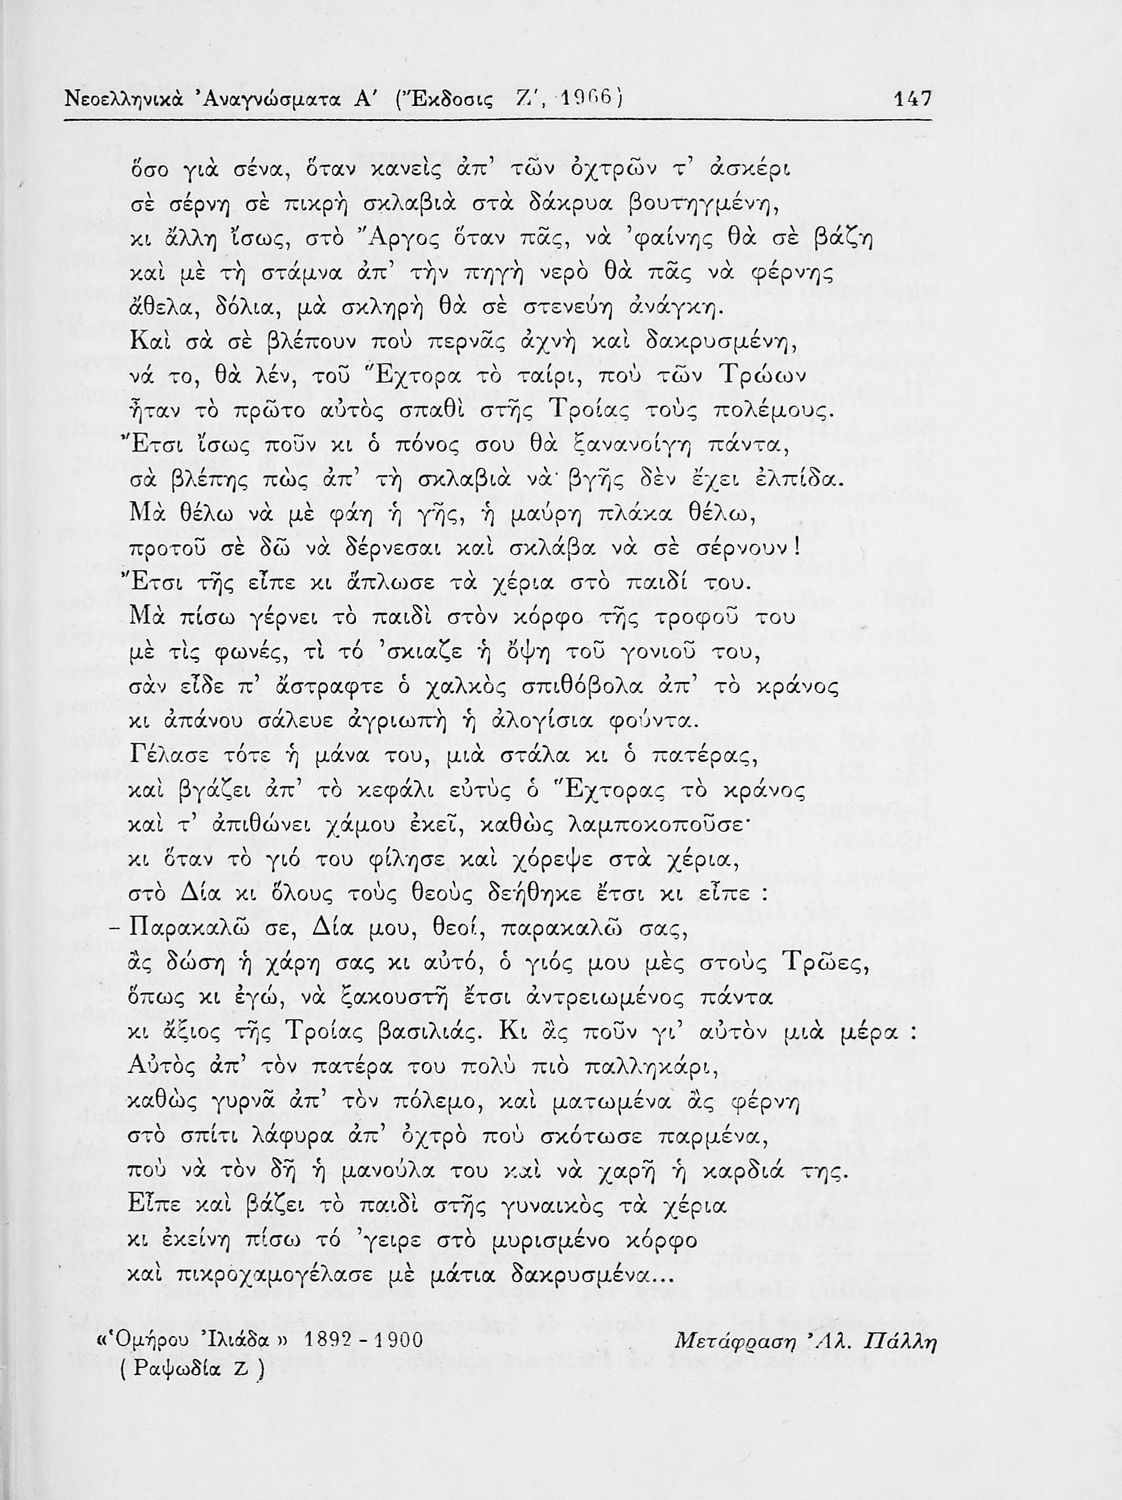 Νεοελληνικὰ Ἀναγνώσματα Α' (Ἔκδοσις Ζ', 1966) 147
ὅσο γιὰ σένα, ὅταν κανεὶς ἀπ' τῶν ὀχτρῶν τ' ἀσκέρι
σὲ σέρνη σὲ πικρὴ σκλαβιὰ στὰ δάκρυα βουτηγμένη,
κι ἄλλη ἴσως, στὸ Ἄργος ὅταν πᾶς, νὰ 'φαίνης θὰ σὲ βάζη
καὶ μὲ τὴ στάμνα ἀπ' τὴν πηγὴ νερὸ θὰ πᾶς νὰ φέρνης
ἄθελα, δόλια, μὰ σκληρὴ θὰ σὲ στενεύη ἀνάγκη.
Καὶ σὰ σὲ βλέπουν ποὺ περνᾶς ἀχνὴ καὶ δακρυσμένη,
νά το, θὰ λέν, τοῦ Ἕχτορα τὸ ταίρι, ποὺ τῶν Τρώων
ἦταν τὸ πρῶτο αὐτὸς σπαθὶ στῆς Τροίας τοὺς πολέμους.
Ἔτσι ἴσως ποῦν κι ὁ πόνος σου θὰ ξανανοίγη πάντα,
σὰ βλέπης πὼς ἀπ' τὴ σκλαβιὰ νὰ· βγῆς δὲν ἔχει ἐλπίδα.
Μὰ θέλω νὰ μὲ φάη ἡ γῆς, ἡ μαύρη πλάκα θέλω,
προτοῦ σὲ δῶ νὰ δέρνεσαι καὶ σκλάβα νὰ σὲ σέρνουν!
Ἔτσι τῆς εἶπε κι ἅπλωσε τὰ χέρια στὸ παιδί του.
Μὰ πίσω γέρνει τὸ παιδὶ στὸν κόρφο τῆς τροφοῦ του
μὲ τὶς φωνές, τὶ τό 'σκιαζε ἡ ὄψη τοῦ γονιοῦ του,
σὰν εἶδε π' ἄστραφτε ὁ χαλκὸς σπιθόβολα ἀπ' τὸ κράνος
κι ἀπάνου σάλευε ἀγριωπὴ ἡ ἀλογίσια φούντα.
Γέλασε τότε ἡ μάνα του, μιὰ στάλα κι ὁ πατέρας,
καὶ βγάζει ἀπ' τὸ κεφάλι εὐτὺς ὁ Ἕχτορας τὸ κράνος
καὶ τ' ἀπιθώνει χάμου ἐκεῖ, καθὼς λαμποκοποῦσε·
κι ὅταν τὸ γιό του φίλησε καὶ χόρεψε στὰ χέρια,
στὸ Δία κι ὅλους τοὺς θεοὺς δεήθηκε ἔτσι κι εἶπε :
- Παρακαλῶ σε, Δία μου, θεοί, παρακαλῶ σας,
ἂς δώση ἡ χάρη σας κι αὐτό, ὁ γιός μου μὲς στοὺς Τρῶες,
ὅπως κι ἐγώ, νὰ ξακουστῆ ἔτσι ἀντρειωμένος πάντα
κι ἄξιος τῆς Τροίας βασιλιάς. Κι ἂς ποῦν γι' αὐτὸν μιὰ μέρα :
Αὐτὸς ἀπ' τὸν πατέρα του πολὺ πιὸ παλληκάρι,
καθὼς γυρνᾶ ἀπ' τὸν πόλεμο, καὶ ματωμένα ἂς φέρνη
στὸ σπίτι λάφυρα ἀπ' ὀχτρὸ ποὺ σκότωσε παρμένα,
ποὺ νὰ τὸν δῆ ἡ μανούλα του καὶ νὰ χαρῆ ἡ καρδιά της.
Εἶπε καὶ βάζει τὸ παιδὶ στῆς γυναικὸς τὰ χέρια
κι ἐκείνη πίσω τό 'γειρε στὸ μυρισμένο κόρφο
καὶ πικροχαμογέλασε μὲ μάτια δακρυσμένα...
«Ὁμήρου Ἰλιάδα» 1892 - 1900 Μετάφραση Ἀλ. Πάλλη
(Ραψωδία Ζ)